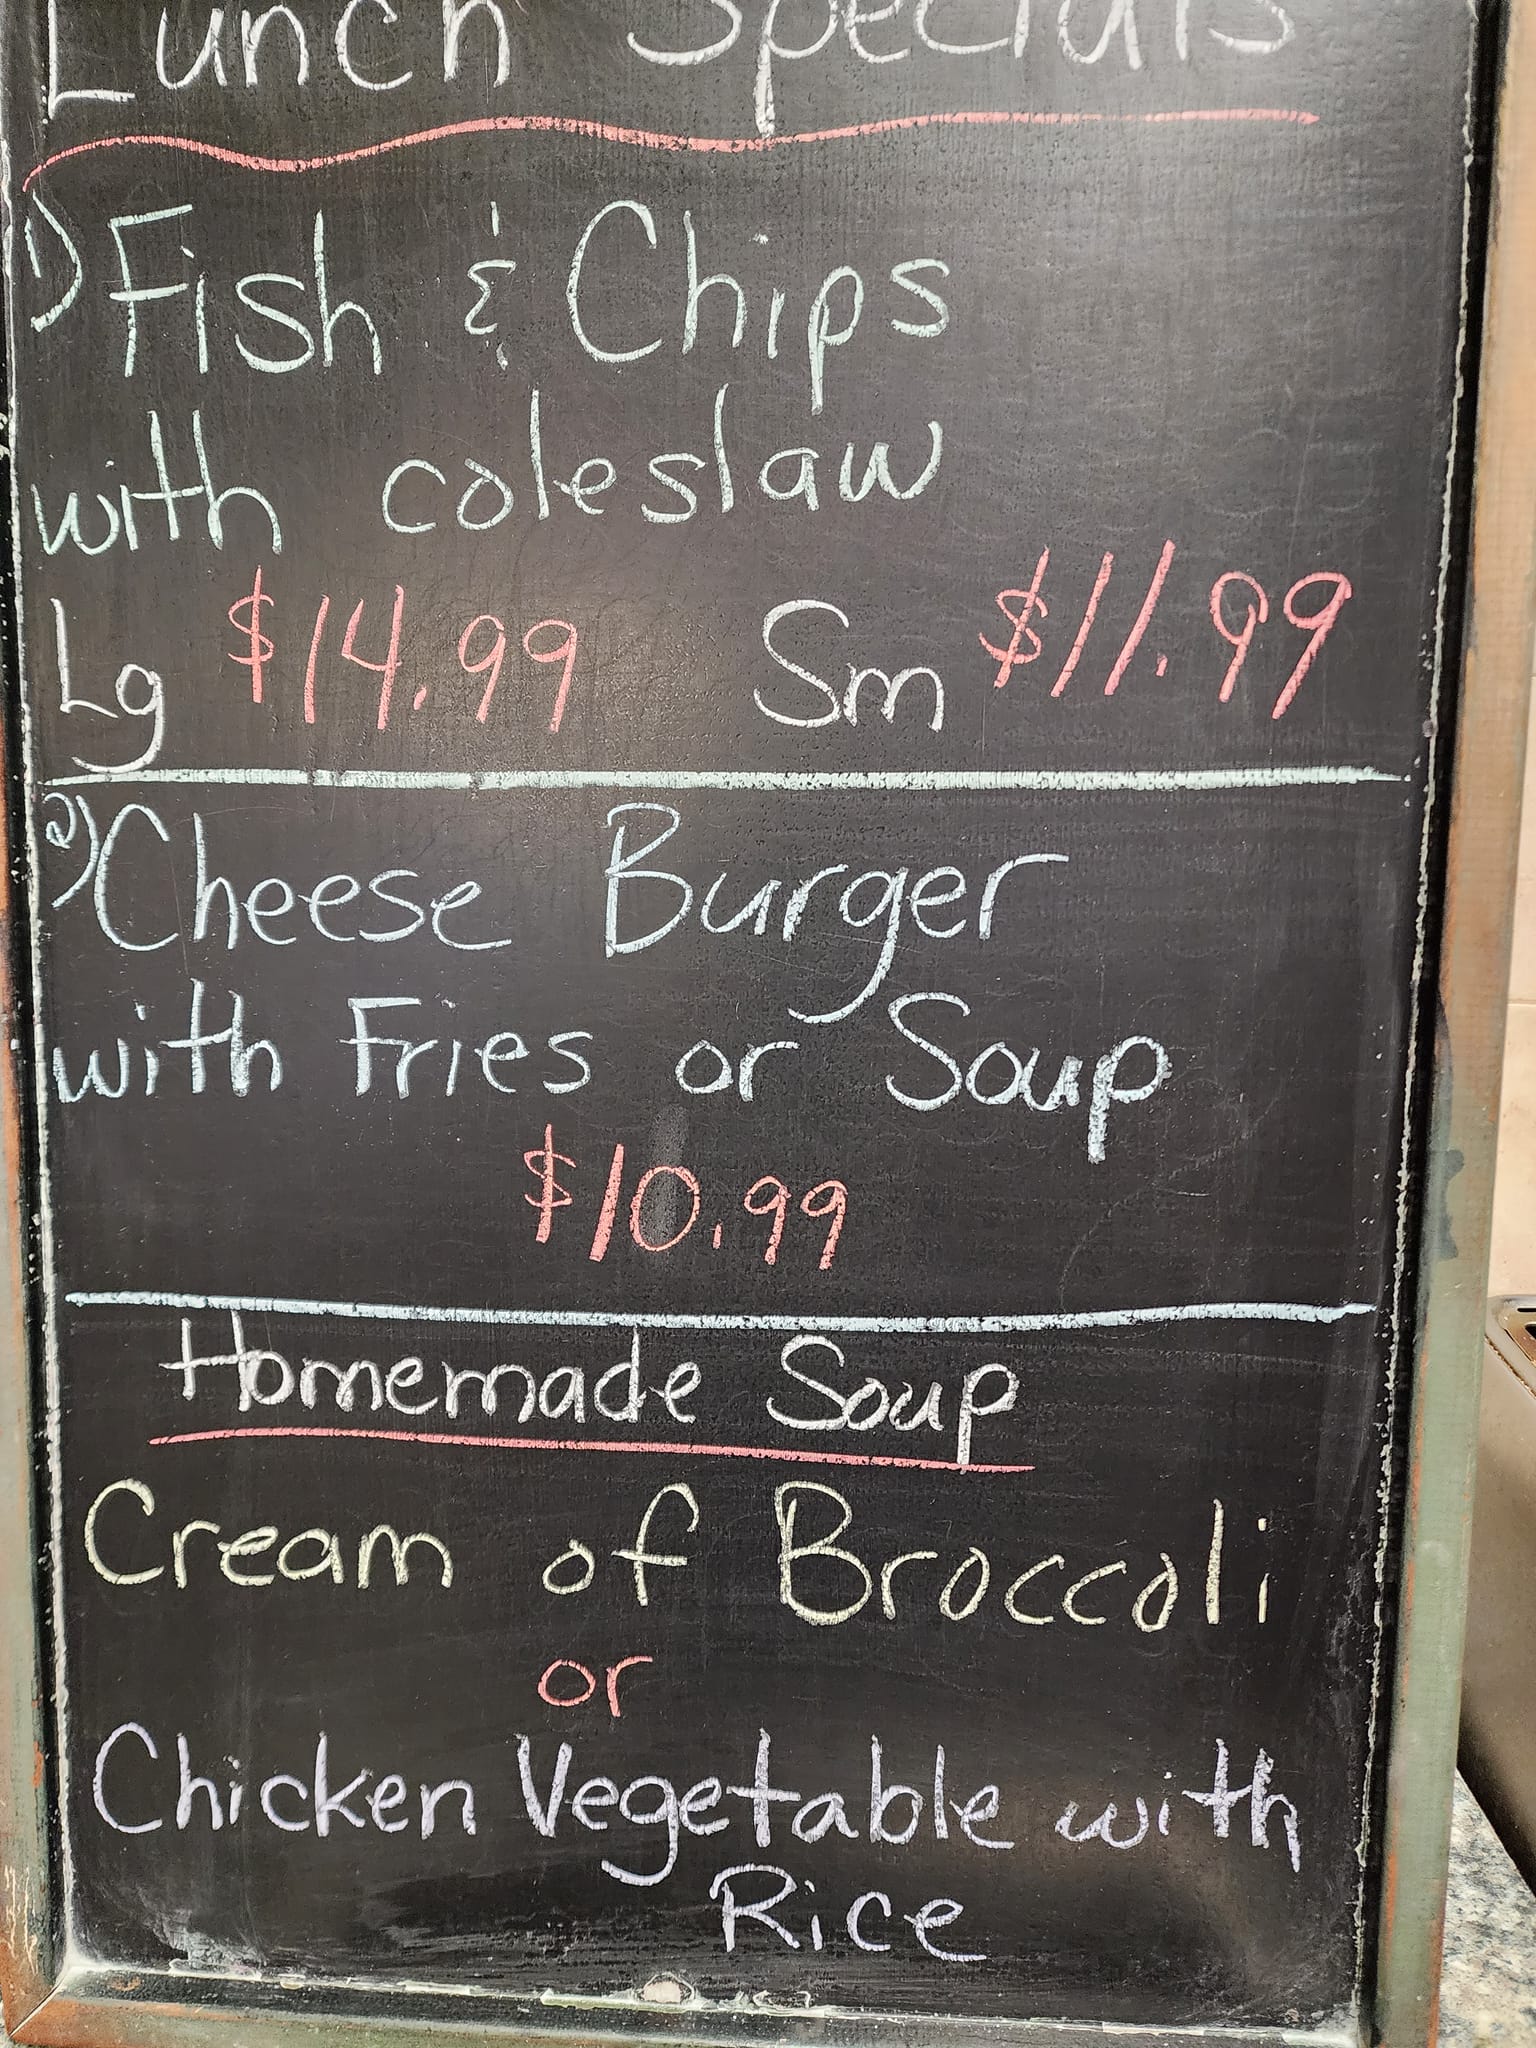 Lunch Specials
1) Fish & Chips
with coleslaw
Lg $14.99 Sm $11.99
2) Cheese Burger
with Fries or Soup
$10.99
Homemade Soup
Cream of Broccoli
or
Chicken Vegetable with
Rice